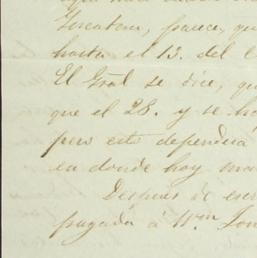 parece, qu
hasta el 13. del
El Gral se dice, qu
que el 28. y se ha
pero esto dependera
en donde hoy
Despues de
pagada á Wm Jon